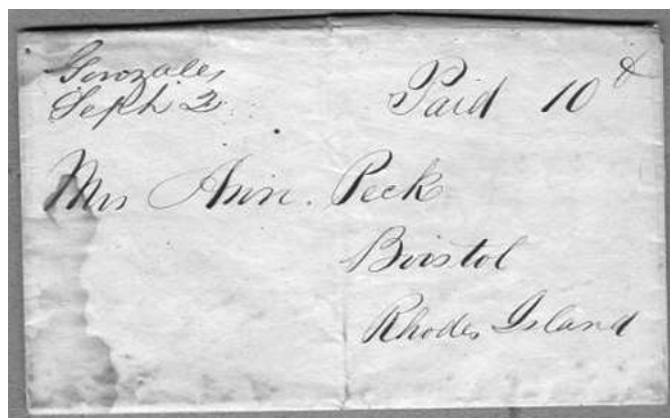 Gonzales
Sept 2
Paid 10
Mrs Ann. Peck
Bristol
Rhodes Island